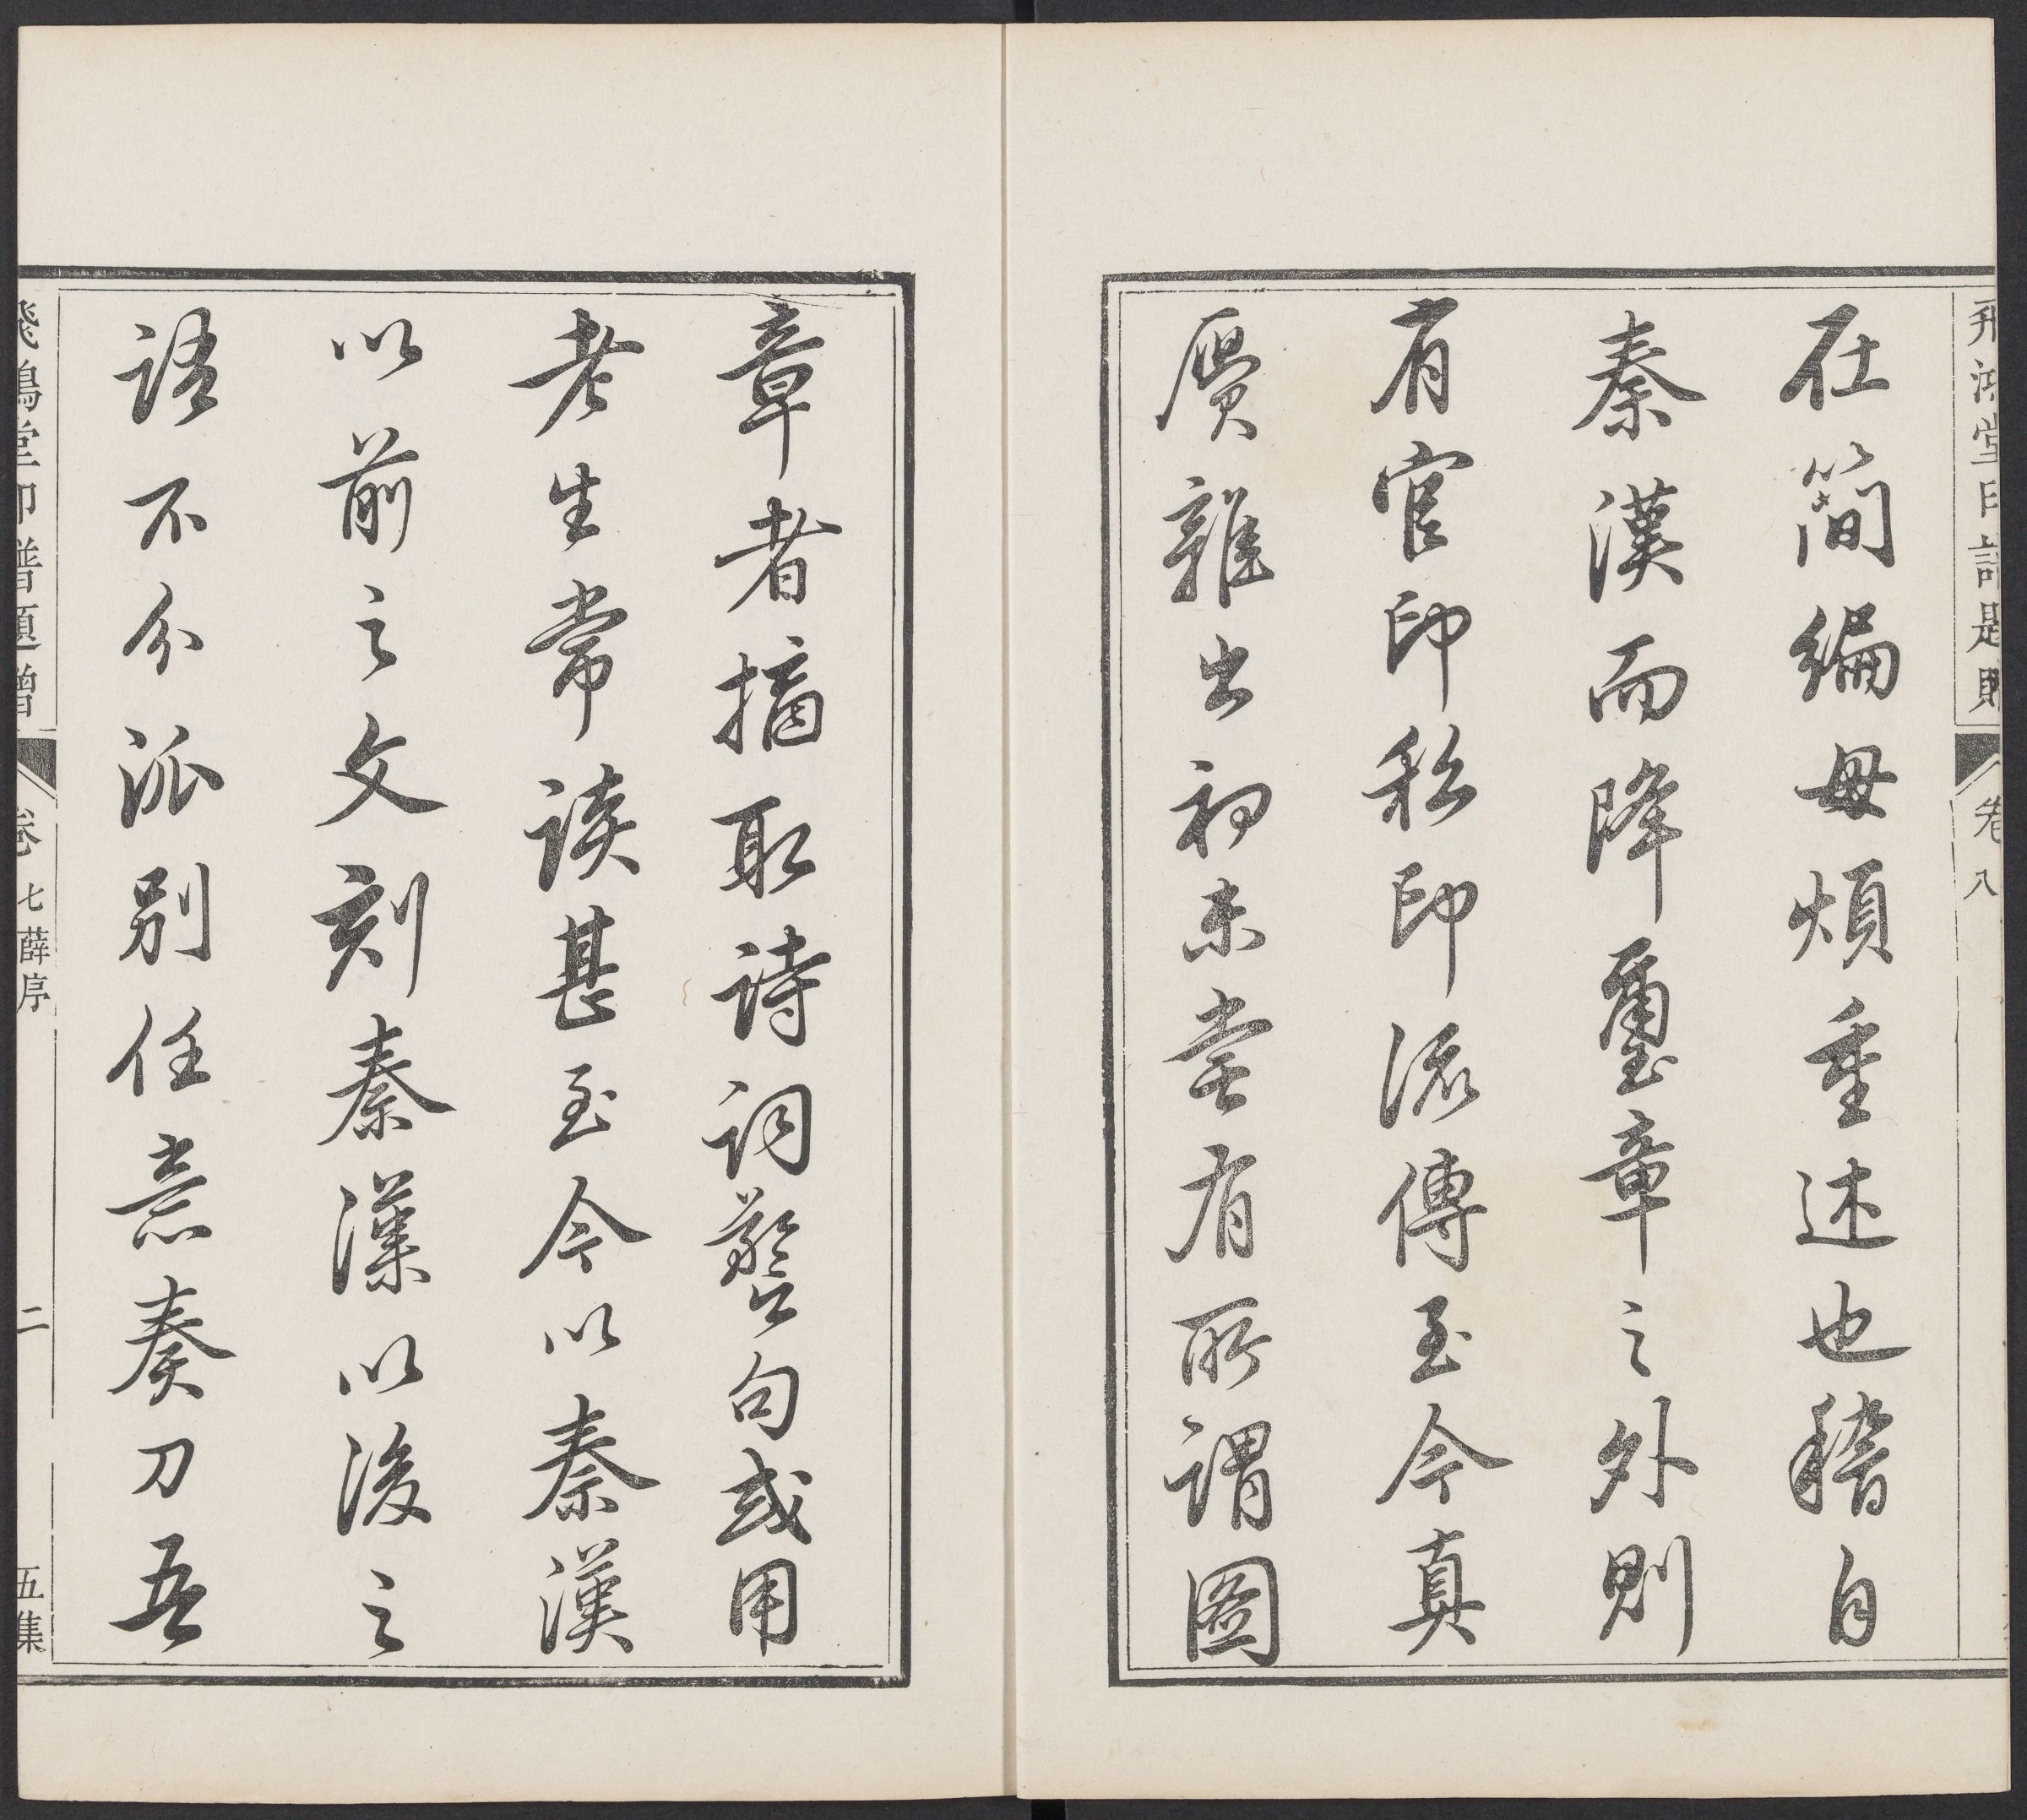 在簡編毋煩重述也稽自
秦漢而降璽章之外則
有官印私印流傳至今真
贋雜出初未嘗有所謂圖
章者摘取詩詞警句或用
老生常談甚至今以秦漢
以前之文刻秦漢以後之
語不分派別任意奏刀吾
飛鴻堂印譜題贈
卷七
薛序
二
五集